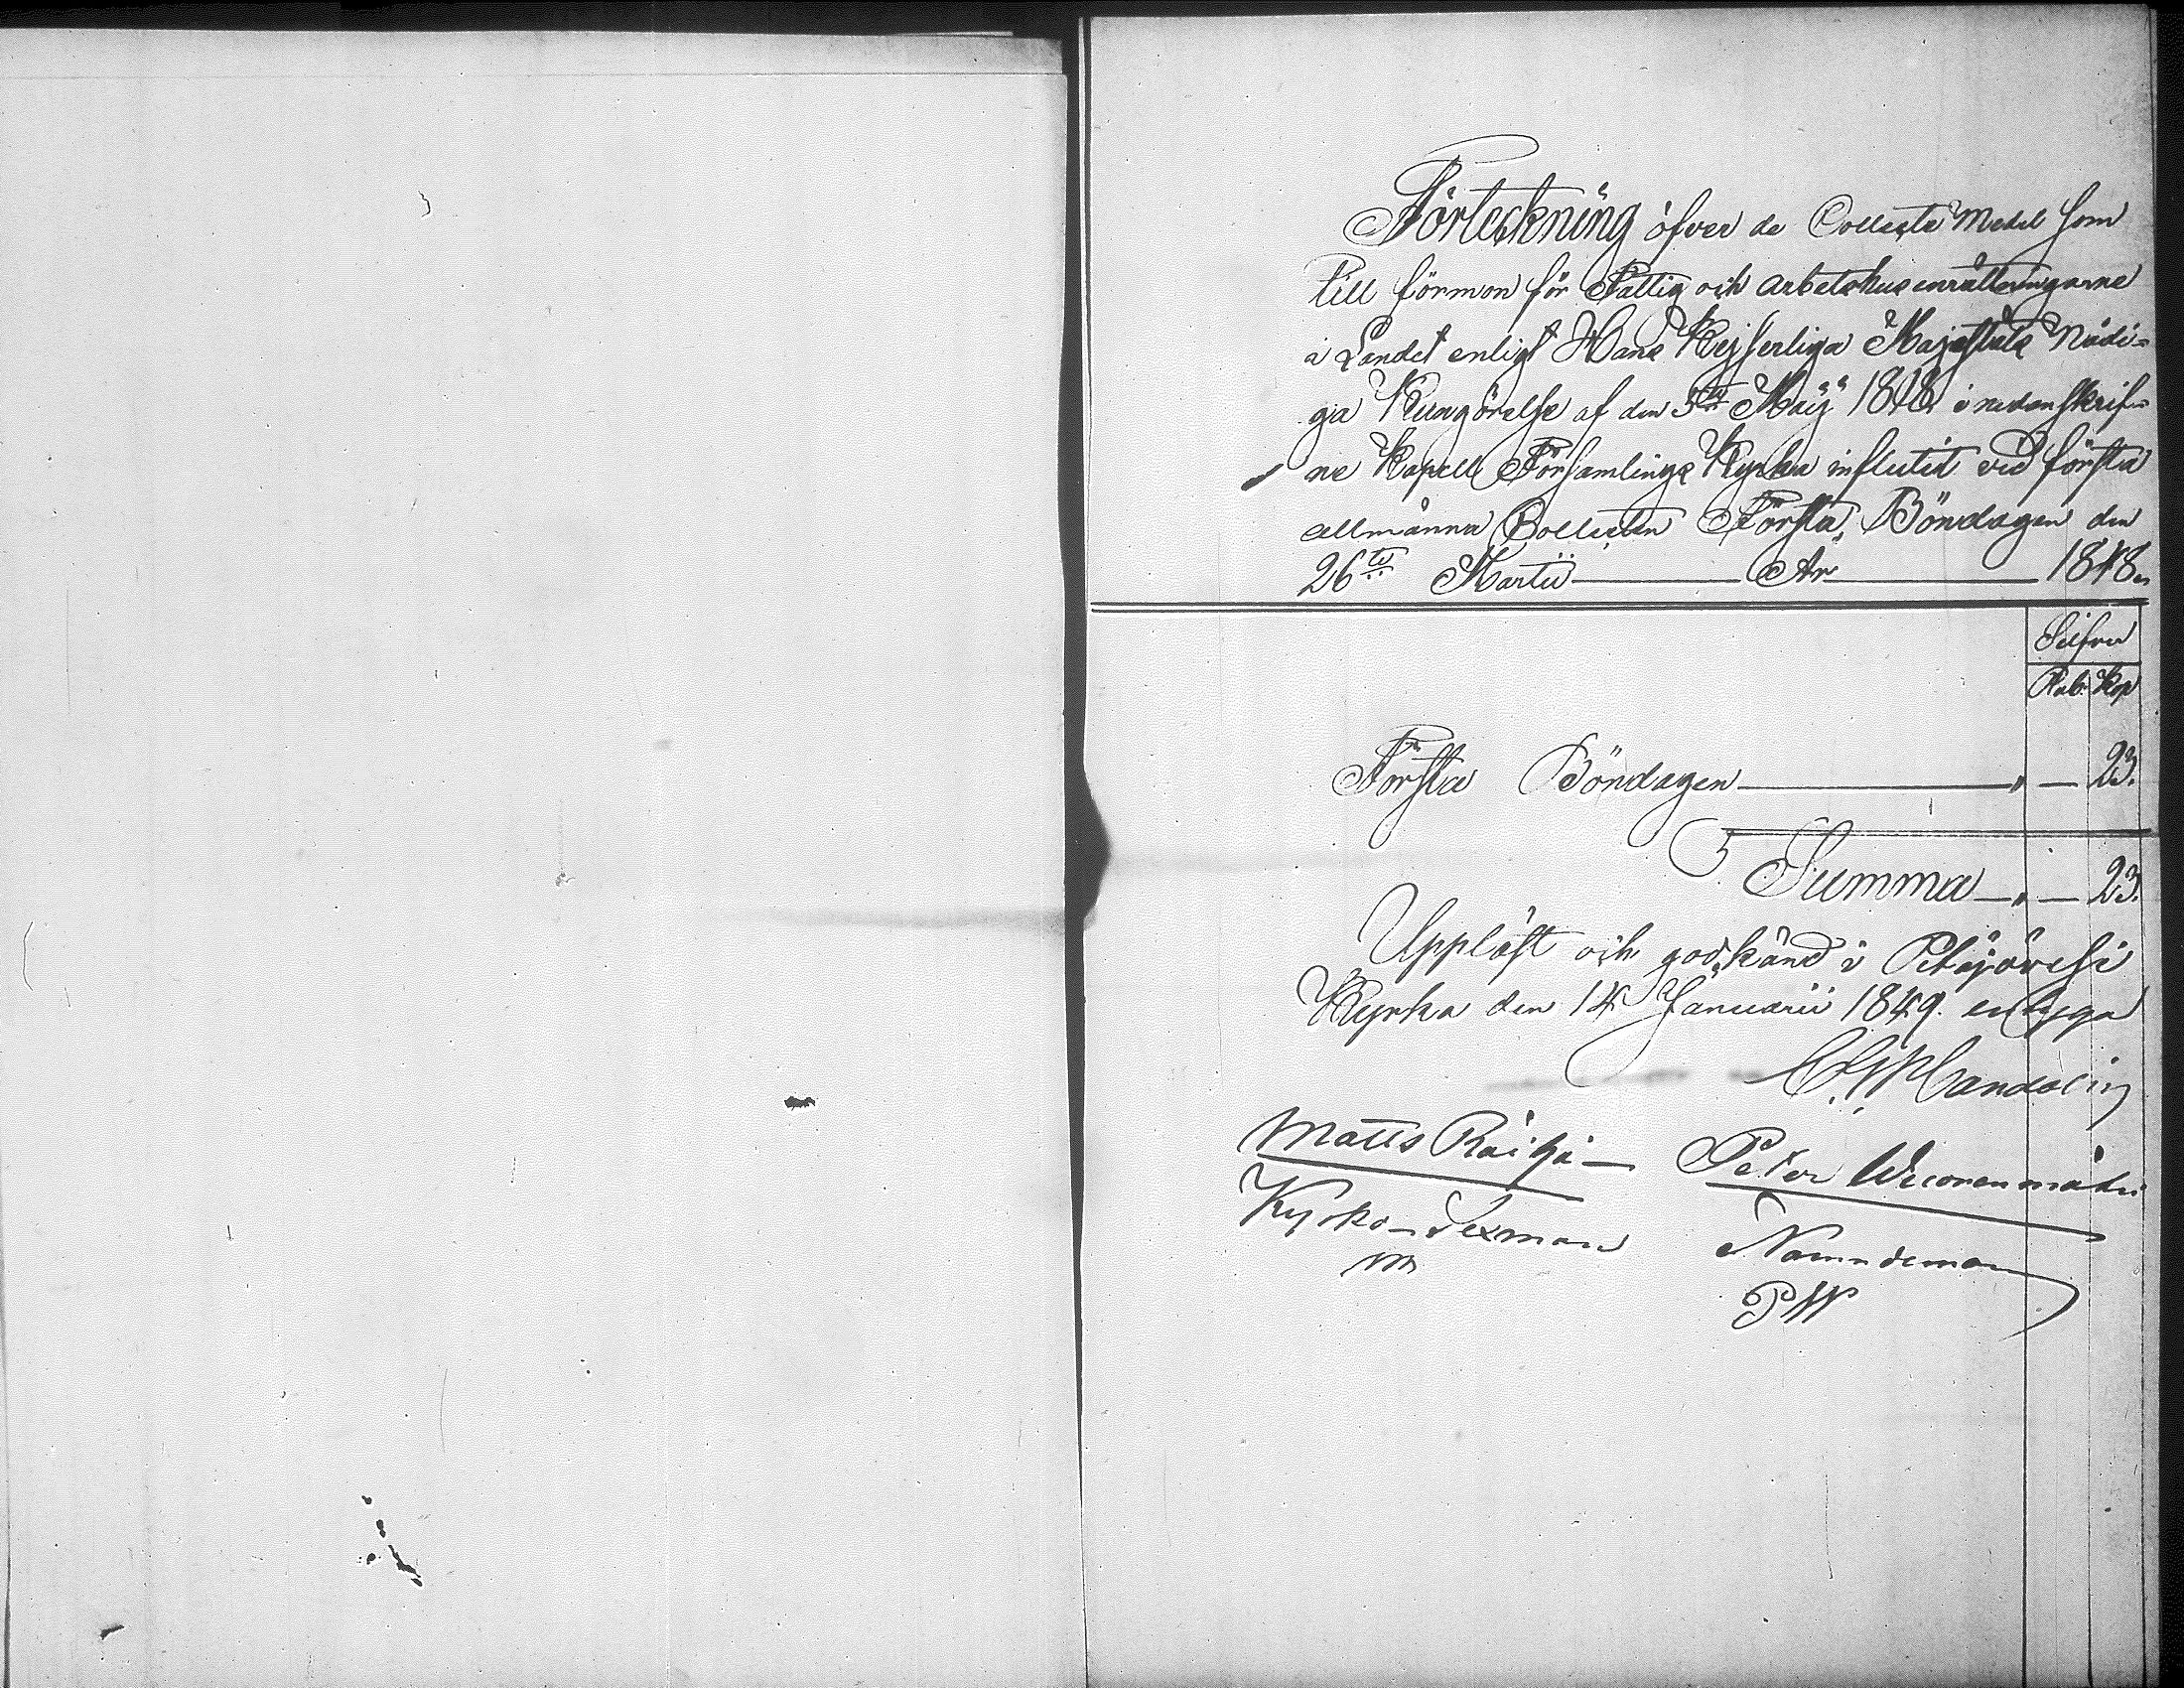 Förteckning öfver de Collecte Medel som
till förmon för Fattig och arbetshus inrättningarne
i Landet enligt Hans Kejserliga Majestäts Nådi=
ga Kungörelse af den 5te Maij 1818 i nedanskrif=
ne Kapell Församlings Kyrka influtit vid första
allmänna Collecten Första Böndagen den
26te Martii — År — 1848.
Silfver
Rub. Kop
Första Böndagen — " — 23.
Summa — " — 23.
Uppläst och godkänd i Petäjävesi
Kyrka den 14 Januarii 1849. 
Matts Räihä — Peter
Kyrko-Sexman Nämndeman
PW